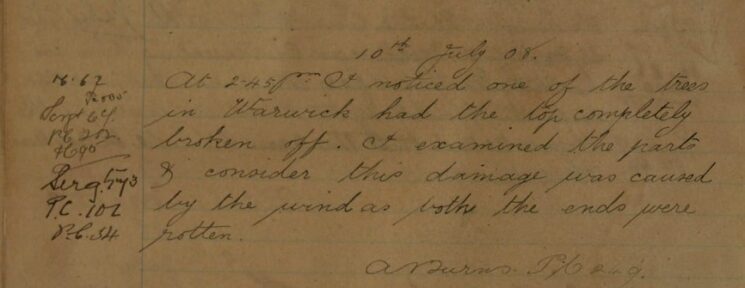 10th July 08.
At 2-45pm I noticed one of the trees
in Warwick had the top completely
broken off. I examined the parts
& consider this damage was caused
by the wind as bothe the ends were
rotten.
ABurns. P.C 249.
Sergt 64
P.C. 202.
Sergt 573
P.C. 102
P.C. 34